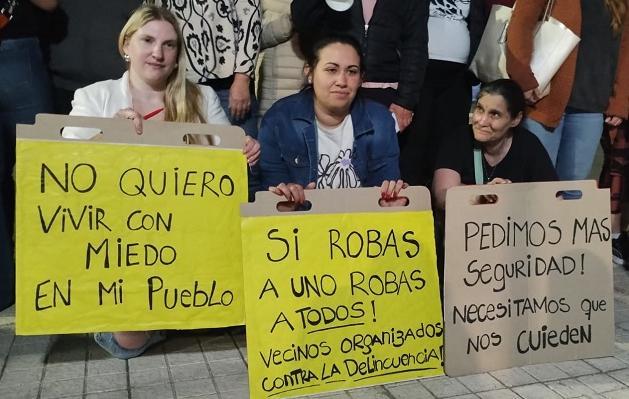 NO QUIERO
VIVIR CON
MIEDO
EN MI PUEBLO
SI ROBAS
A UNO ROBAS
A TODOS!
VECINOS ORGANIZADOS
CONTRA LA DELINCUENCIA!
PEDIMOS MAS
SEGURIDAD!
NECESITAMOS QUE
NOS CUIEDEN